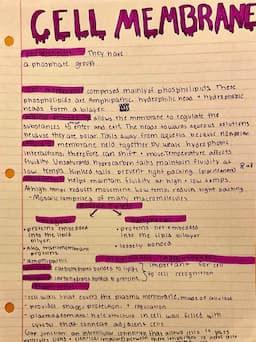 CELL MEMBRANE
They have
a phosphate group
comprised mainly of phospholipids. These
phospholipids are Amphipathic. hydrophilic head + hydrophobic
heads. Form a bilayer
allows the membrane to regulate the
substances to enter and exit. The heads towards aqueous solutions
because they are polar. Tails away from aqueous because nonpolar
membrane held together by weak hydrophobic
interactions, therefore can shift + move. Temperature affects
fluidity. Unsaturated hydrocarbon tails maintain fluidity at
low temps. Kinked tails prevent tight packing.
helps maintain fluidity at high + low temps
At high temp reduces movement, low temp reduces tight packing
- Mosaic comprised of many macromolecules
• proteins embedded
into the lipid
bilayer
• aka transmembrane
proteins
• amphipathic
• proteins not embedded
into the lipid
• loosely bonded
carbohydrates bonded to lipids
carbohydrates bonded to proteins
important for cell
to cell recognition
- cell wall that covers the plasma membrane,
- provides shape, protection, + regulation
- plasmodesmata: hole structure in cell wall filled with
cytosol that connects adjacent cells